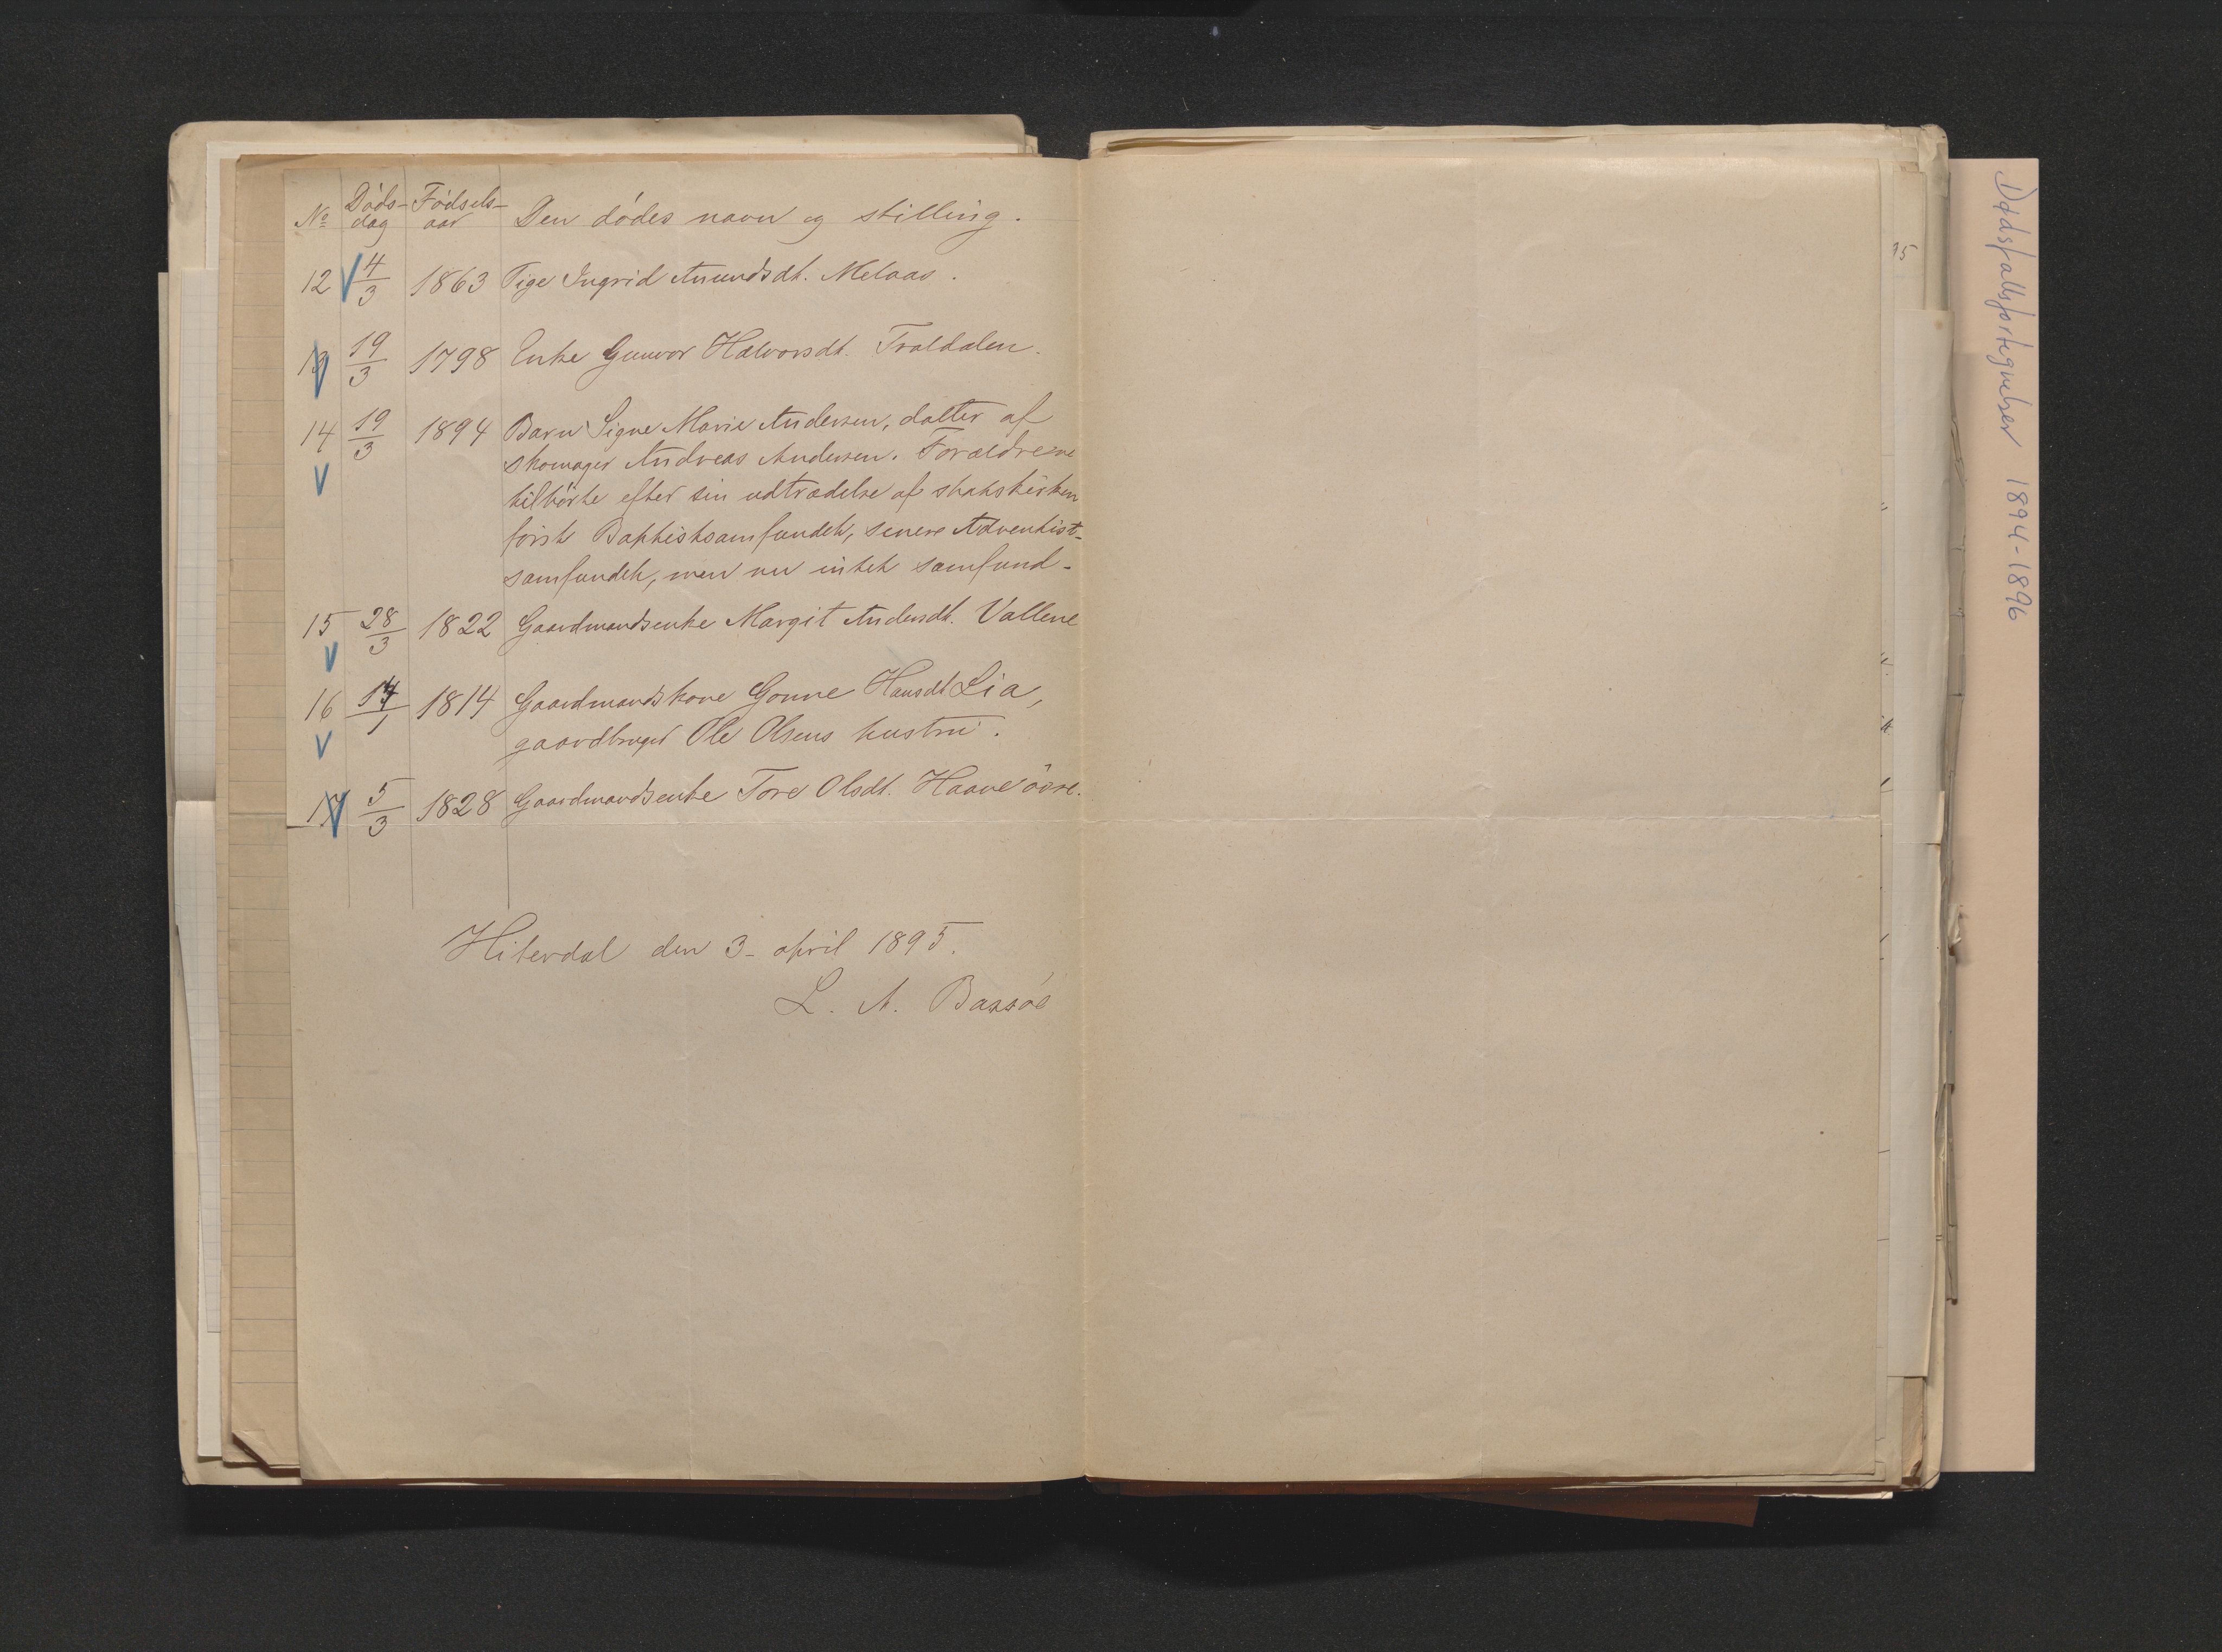 No Döds- Födsels- Den dödes navn og stilling.
dag aar
12 4/3 1863 Pige Ingrid Amundsdt. Melaas.
13 19/3 1798 Enke Gunvor Halvorsdt. Traldalen.
14 19/3 1894 Barn Signe Marie Andersen, datter af
skomager Andreas Andersen. Forældrene
tilhörte efter sin udtrædelse af statskirken
först Baptistsamfundet, senere Adventist-
samfundet, men nu intet samfund.
15 28/3 1822 Gaardmandsenke Margit Andersdt. Vallene
16 14/1 1814 Gaardmandskone Gonne Hansdt Lia,
gaardbruger Ole Olsens hustru.
17 5/3 1828 Gaardmandsenke Tore Olsdt. Haave övre.
Hiterdal den 3. april 1895.
L. A. Bassöe
95
Dødsfallsfortegnelser 1894-1896